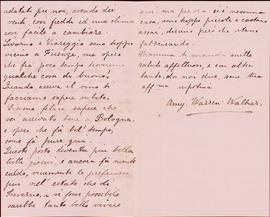 adatte per noi, avendo dei
venti con fredda ed una clima
cosi facile a cambiare.
Siviamo a Viareggio sono troppo
vicino a Firenze, ma spero
che fra poco tempo troviamo
qualche cosa di buono!
Quando avrai il vento ti
facciamo sapere subito.
Siamo felici sapere che
sei arrivato bene a Bologna,
e spero che fa bel tempo,
come fa pure qui.
Questo posto diventa piu bello
tutti giorni, e ancora fa molto
caldo, veramente lo preferiamo
nell' estate che di
Inverno, e se fosse possibile
sarebbe tanto bello vivere
qui, ma per ora si è nessuna
casa, sono troppo piccole e costano
assai, dicono pero che stanno
fabricando.
Mamma ti manda mille
saluti affettuosi, e con altre
tante, da noi due, sono tua
aff ma nipotina
Amy Warren-Walker.